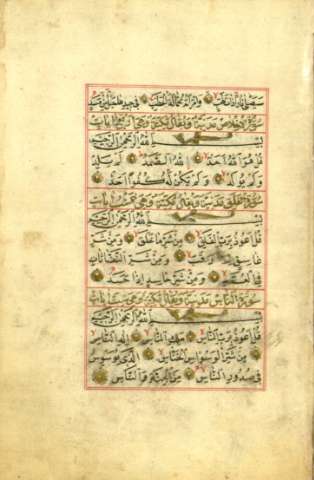 سَيَصْلَى نَارًا ذَاتَ لَهَبٍ وَامْرَأَتُهُ حَمَّالَةَ الْحَطَبِ فِي جِيدِهَا حَبْلٌ مِنْ مَسَدٍ
سورة الاخلاص مدنية ويقال مكية وهي اربع ايات
بِسْمِ اللَّهِ الرَّحْمَنِ الرَّحِيمِ
قُلْ هُوَ اللَّهُ أَحَدٌ اللَّهُ الصَّمَدُ لَمْ يَلِدْ
وَلَمْ يُولَدْ وَلَمْ يَكُنْ لَهُ كُفُوًا أَحَدٌ
سورة الفلق مدنية ويقال مكية وهي خمس ايات
بِسْمِ اللَّهِ الرَّحْمَنِ الرَّحِيمِ
قُلْ أَعُوذُ بِرَبِّ الْفَلَقِ مِنْ شَرِّ مَا خَلَقَ وَمِنْ شَرِّ
غَاسِقٍ إِذَا وَقَبَ وَمِنْ شَرِّ النَّفَّاثَاتِ
فِي الْعُقَدِ وَمِنْ شَرِّ حَاسِدٍ إِذَا حَسَدَ
سورة الناس مدنية ويقال مكية وهي ست ايات
بِسْمِ اللَّهِ الرَّحْمَنِ الرَّحِيمِ
قُلْ أَعُوذُ بِرَبِّ النَّاسِ مَلِكِ النَّاسِ إِلَهِ النَّاسِ
مِنْ شَرِّ الْوَسْوَاسِ الْخَنَّاسِ الَّذِي يُوَسْوِسُ
فِي صُدُورِ النَّاسِ مِنَ الْجِنَّةِ وَالنَّاسِ